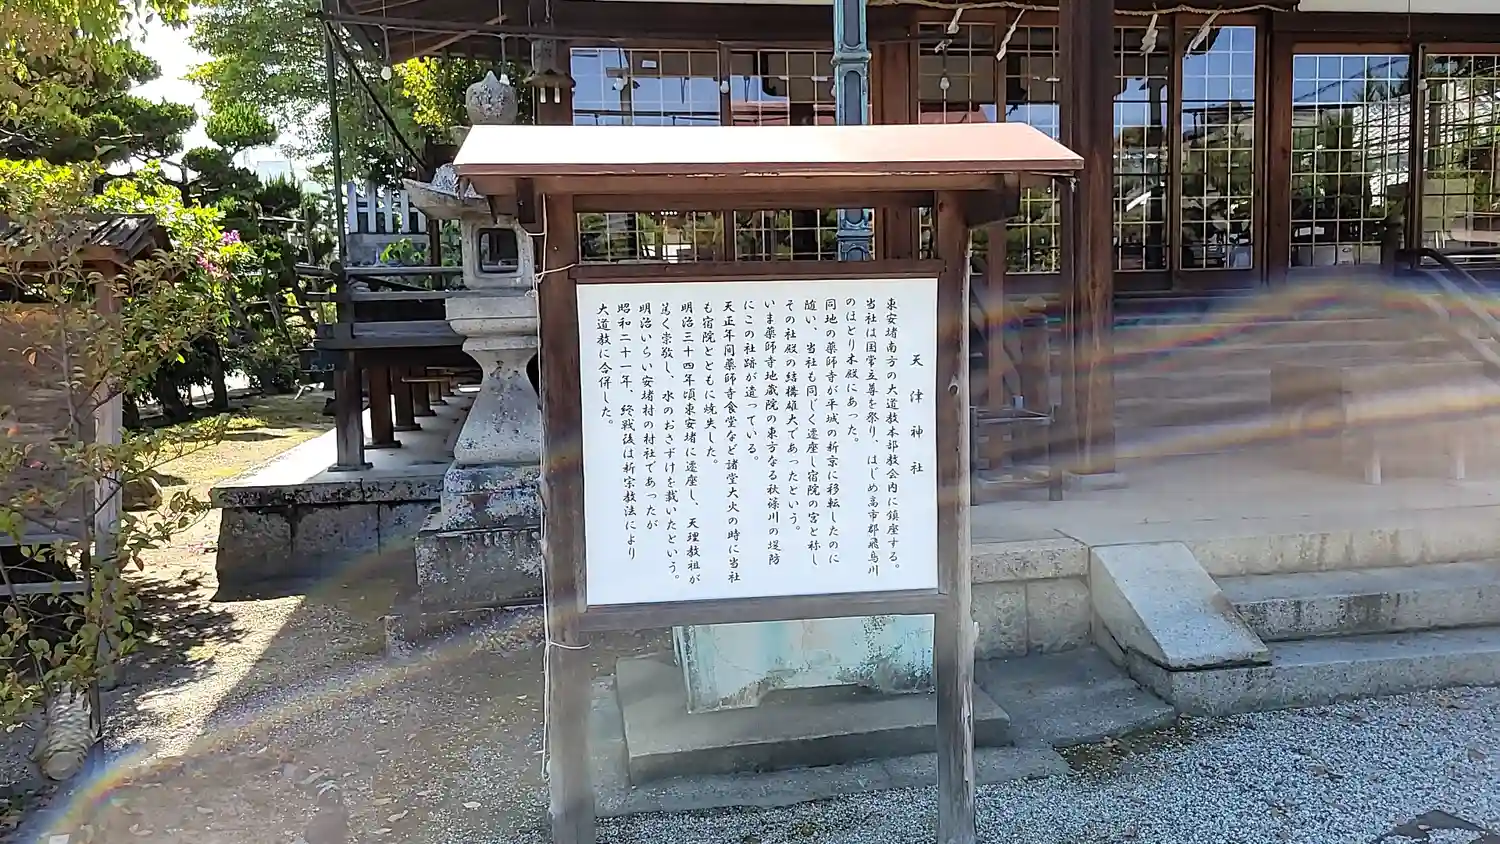 天津神社
東安堵南方の大道教本部教会内に鎮座する。
当社は国常立尊を祭り、はじめ高市郡飛鳥川
のほとり本殿にあった。
同地の薬師寺が平城の新京に移転したのに
随い、当社も同じく遷座し宿院の宮と称し
その社殿の結構雄大であったという。
いま薬師寺地蔵院の東方なる秋篠川の堤防
にこの社跡が遺っている。
天正年間薬師寺食堂など諸堂大火の時に当社
も宿院とともに焼失した。
明治三十四年頃東安堵に遷座し、天理教祖が
篤く崇敬し、水のおさずけを戴いたという。
明治いらい安堵村の村社であったが
昭和二十一年、終戦後は新宗教法により
大道教に合併した。